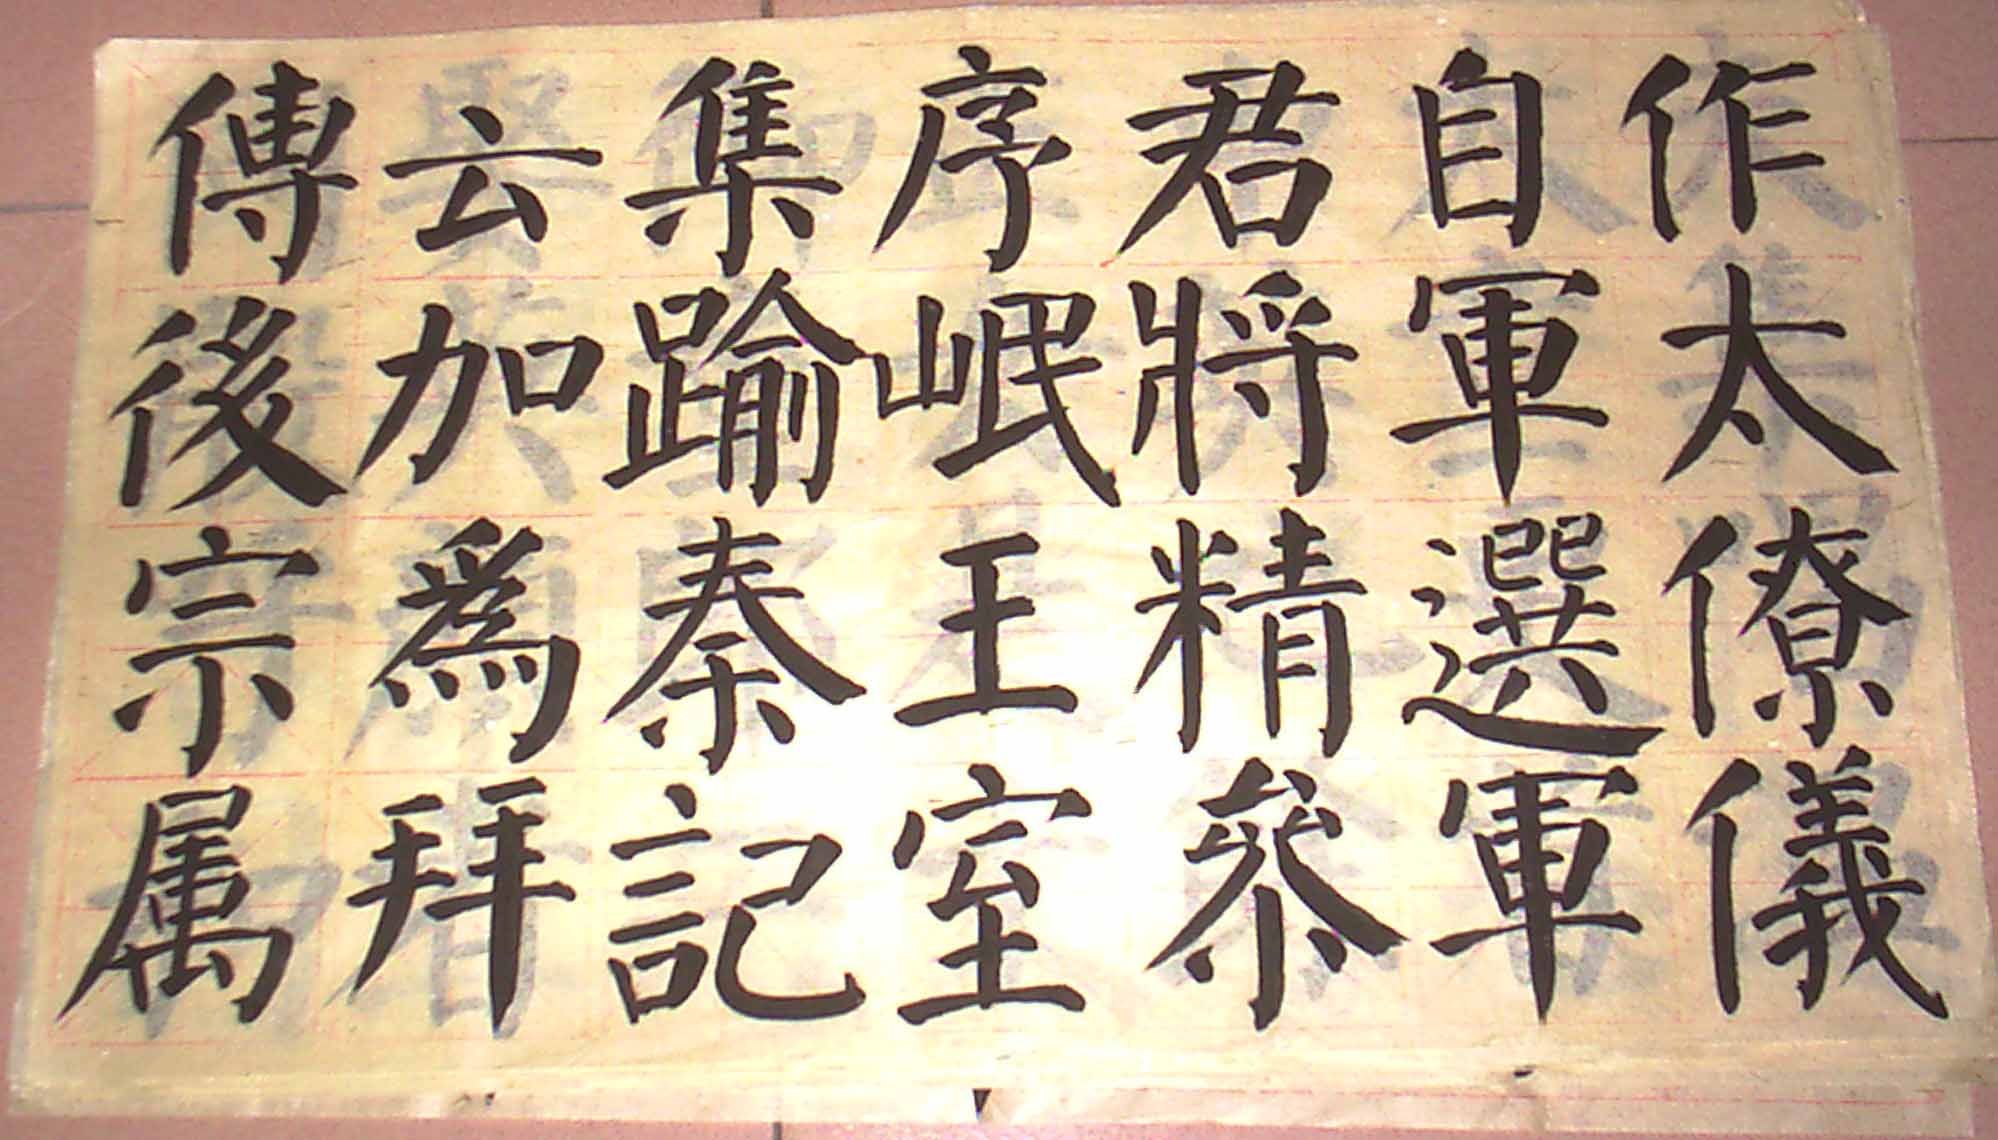 作太僚儀
自軍選軍
君將精參
序岷王室
集踰秦記
云加爲拜
傳後宗属